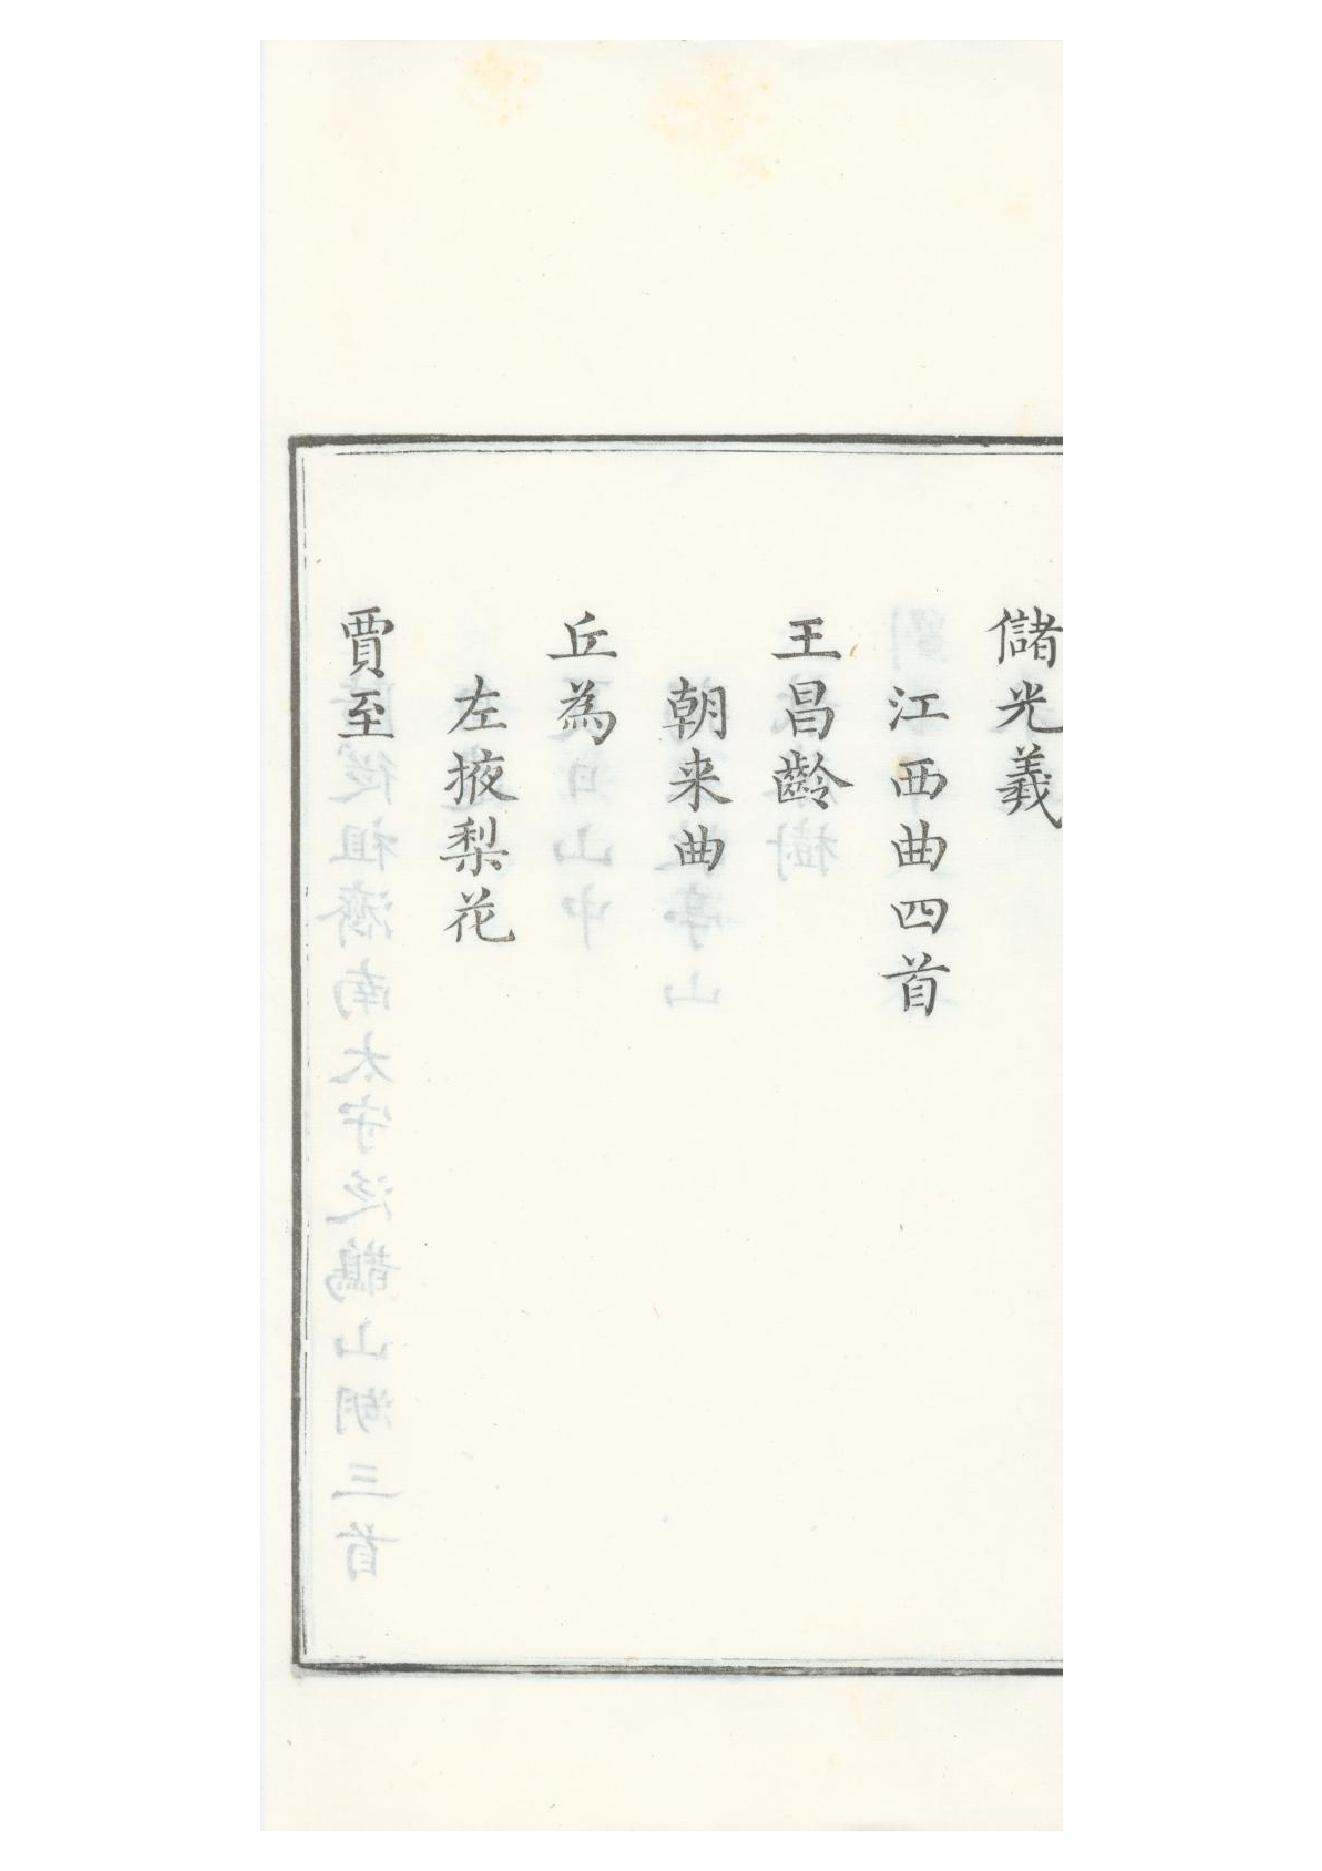 儲光羲
江西曲四首
王昌齡
朝来曲
丘為
左掖梨花
賈至